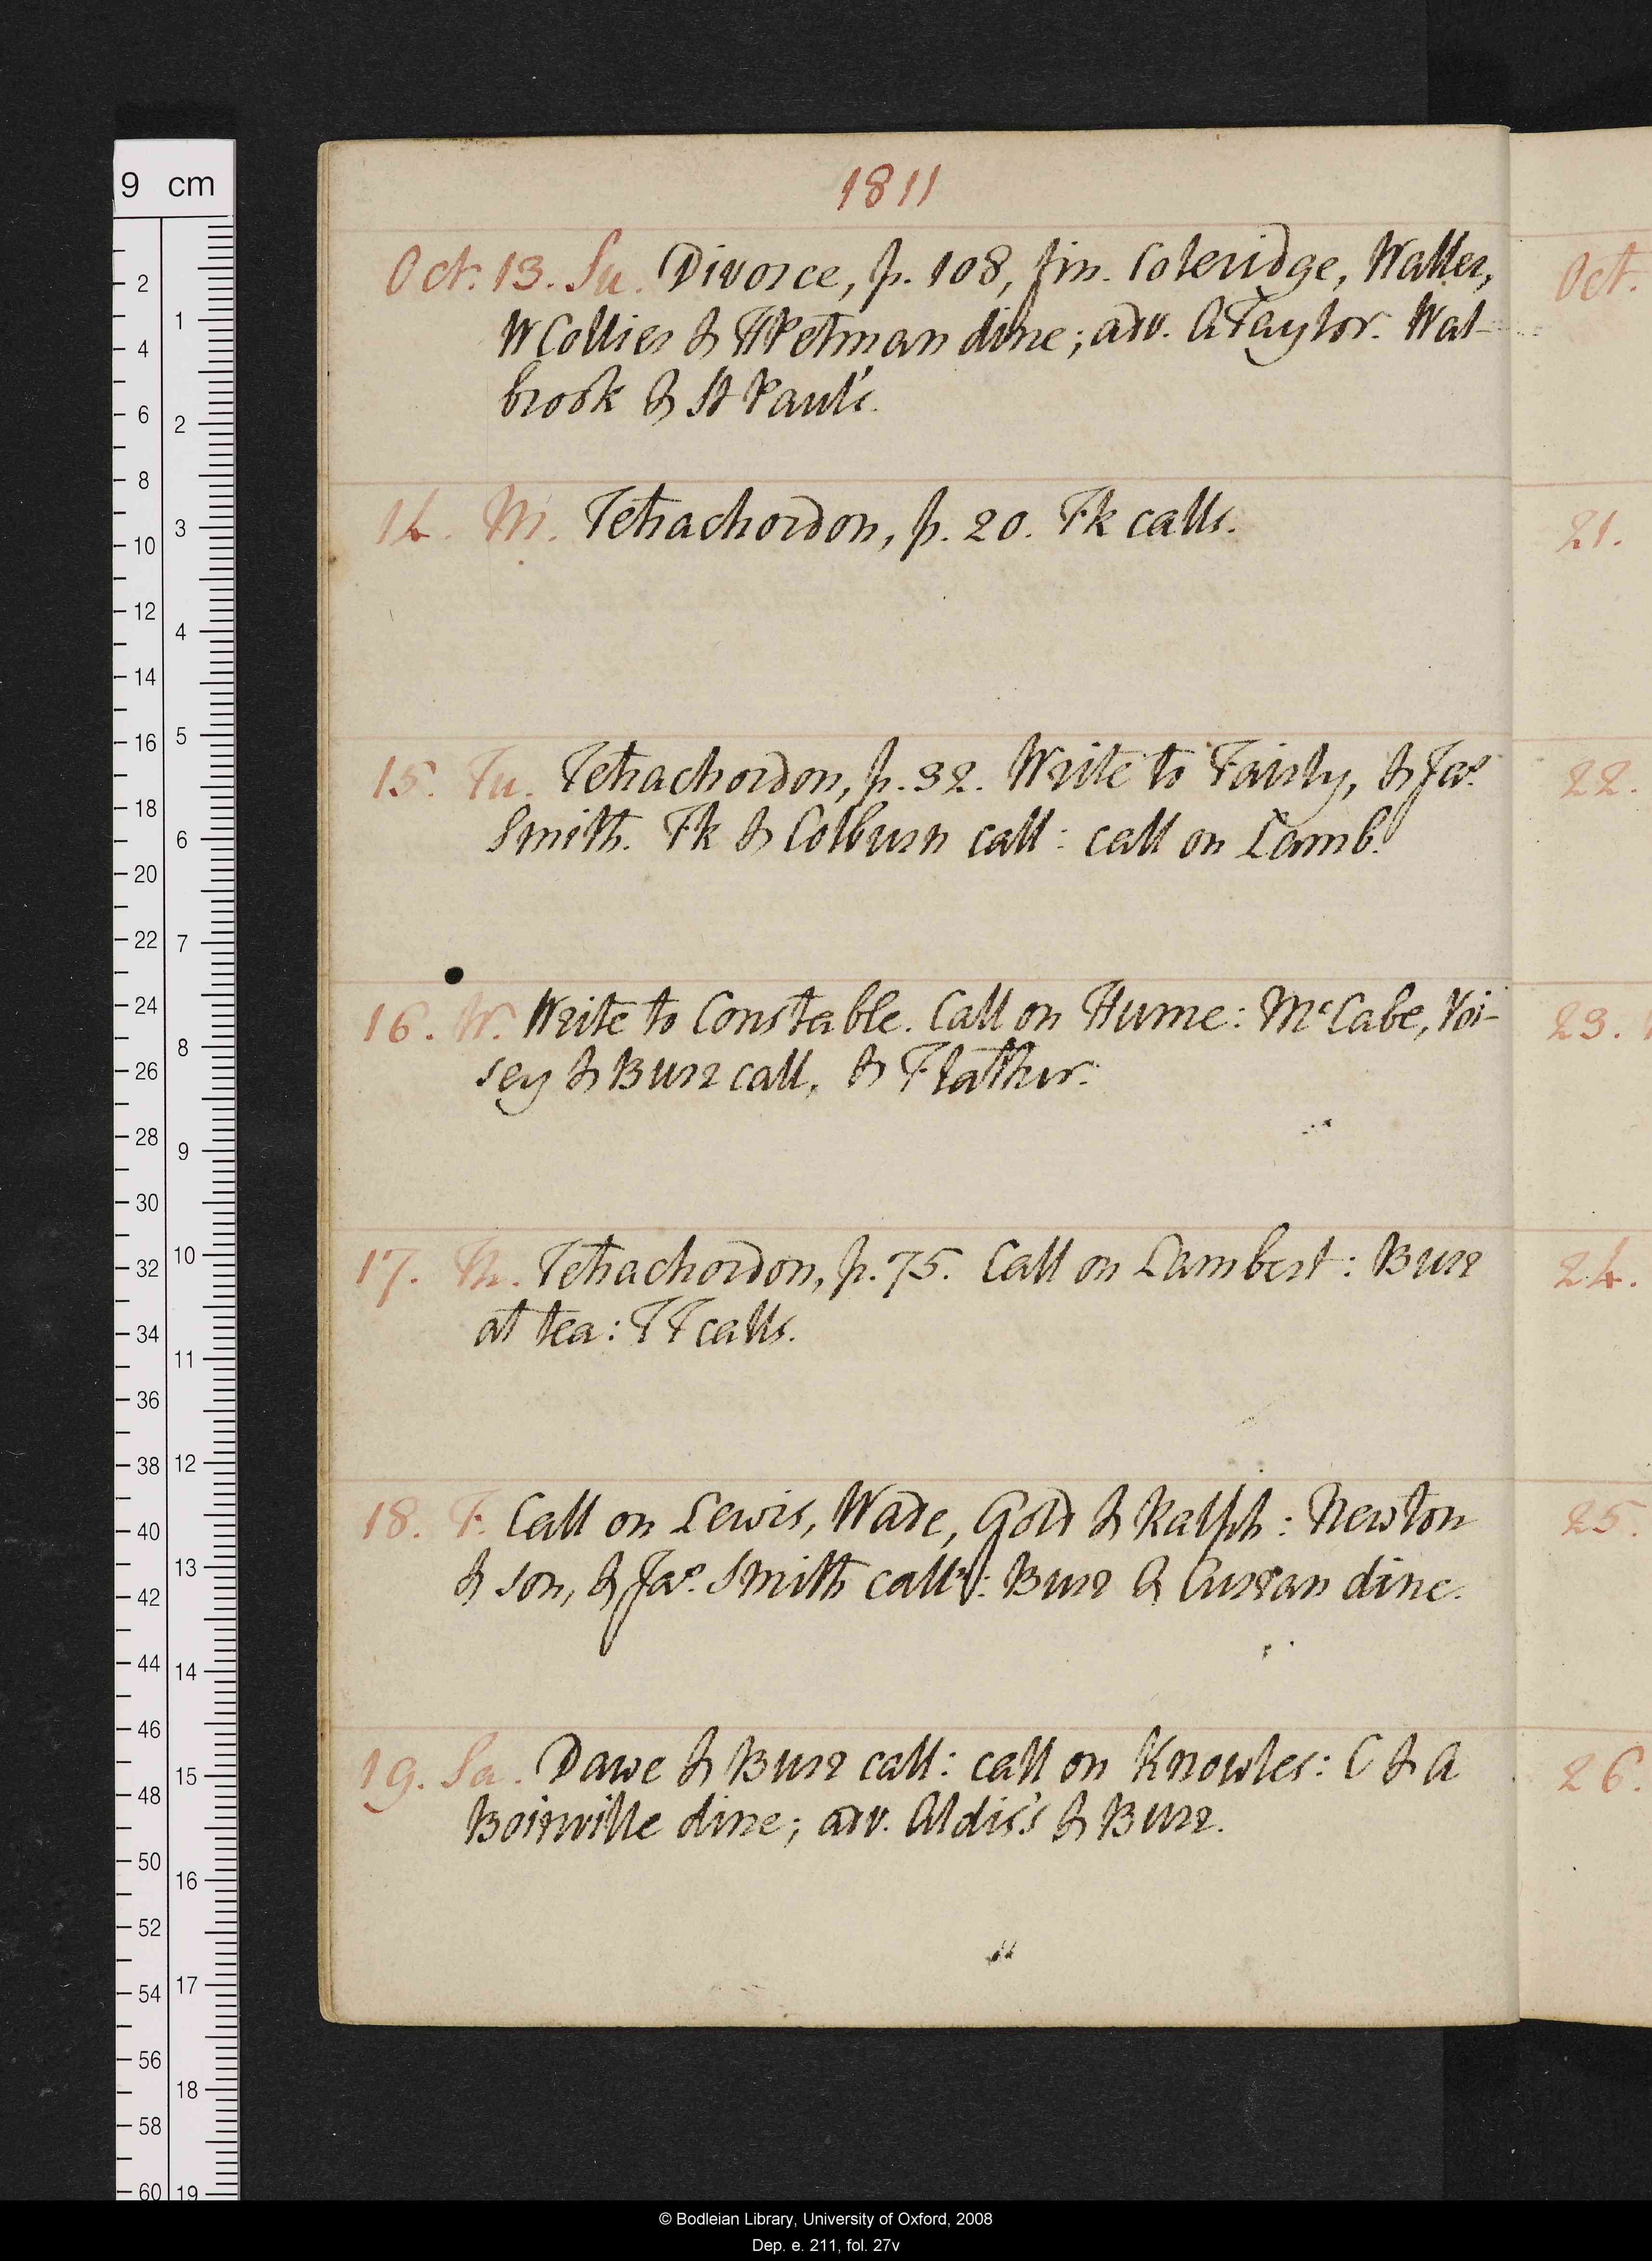 1811
Oct. 13. Su. Divorce, p. 108, fin. Coleridge, Waller,
W Collier & H Petman dine; adv. A Taylor. Wal-
brook & St Paul's.
14. M. Tetrachordon, p. 20. Fk calls.
15. Tu. Tetrachordon, p. 32. Write to Fairly, & Jas
Smith. Fk & Colburn call: call on Lamb.
16. W. Write to Constable. Call on Hume: McCabe, Voi-
sey & Burr call, & Flather.
17. Th. Tetrachordon, p. 75. Call on Lambert: Burr
at tea: TT calls.
18. F. Call on Lewis, Wade, Gold & Ralph: Newton
& son, & Jas. Smith calln: Burr & Curran dine.
19. Sa. Dawe & Burr call: call on Knowles: C & A
Boinville dine; adv. Aldis's & Burr.
Oct.
21.
22.
23.
24.
25.
26.
9 cm
2
4
6
8
10
12
14
16
18
20
22
24
26
28
30
32
34
36
38
40
42
44
46
48
50
52
54
56
58
60
1
2
3
4
5
6
7
8
9
10
11
12
13
14
15
16
17
18
19
© Bodleian Library, University of Oxford, 2008
Dep. e. 211, fol. 27v